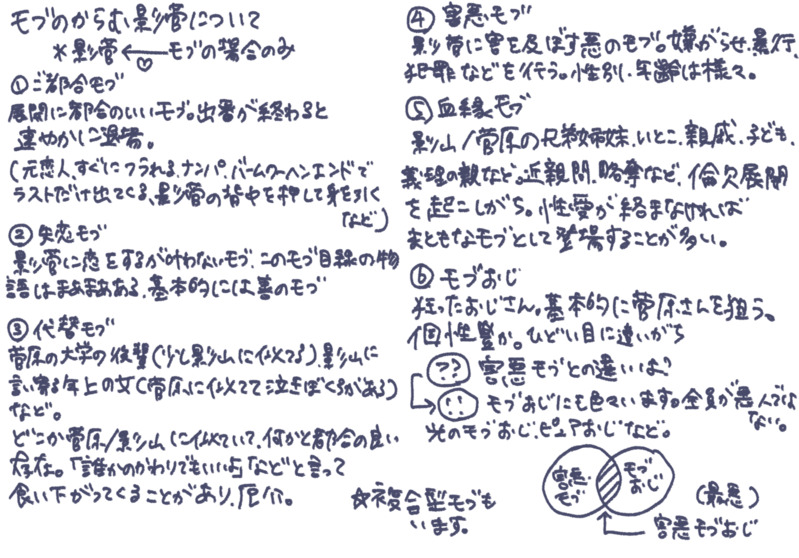 モブのからむ影菅について
*影菅←モブの場合のみ
①ご都合モブ
展開に都合のいいモブ。出番が終わると
速やかに退場。
(元恋人、すぐにフラれる、ナンパ、バームクーヘンエンドで
ラストだけ出てくる、影菅の背中を押して身を引く
など)
②失恋モブ
影菅に恋をするが叶わないモブ、このモブ目線の物
語はまぁまぁある、基本的には善のモブ
③代替モブ
菅原の大学の後輩(少し影山に似てる)、影山に
言い寄る年上の女(菅原に似てて泣きぼくろがある)
など。
どこか菅原/影山に似ていて、何かと都合の良い
存在。「誰かのかわりでもいい」などと言って
食い下がってくることがあり、厄介。
☆複合型モブも
います。
④害悪モブ
影菅に害を及ぼす悪のモブ。嫌がらせ、暴行、
犯罪などを行う。性別、年齢は様々。
⑤血縁モブ
影山/菅原の兄弟姉妹、いとこ、親戚、子ども、
義理の親など。近親間、略奪など、倫欠展開
を起こしがち。性愛が絡まなければ
まともなモブとして登場することが多い。
⑥モブおじ
狂ったおじさん。基本的に菅原さんを狙う。
個性豊か。ひどい目に遭いがち
?? 害悪モブとの違いは?
モブおじにも色々います。全員が悪人では
ない。
光のモブおじ、ピュアおじなど。
害悪モブ
モブおじ
(最悪)
害悪モブおじ